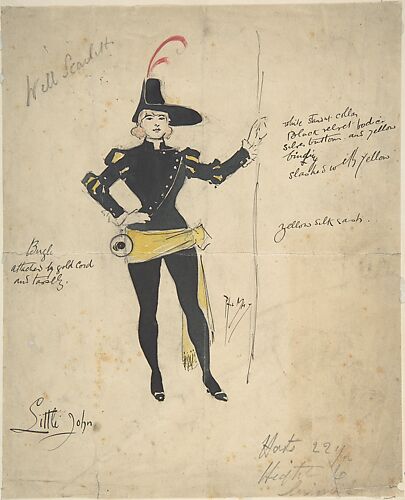 Will Scarlett
White Tunst collar
Black velvet bodice
silver buttons and yellow
binding
slashed with yellow
Yellow silk sash.
Bugle
attached by gold cord
and tassels.
Little John
Hats 22½
Height 6